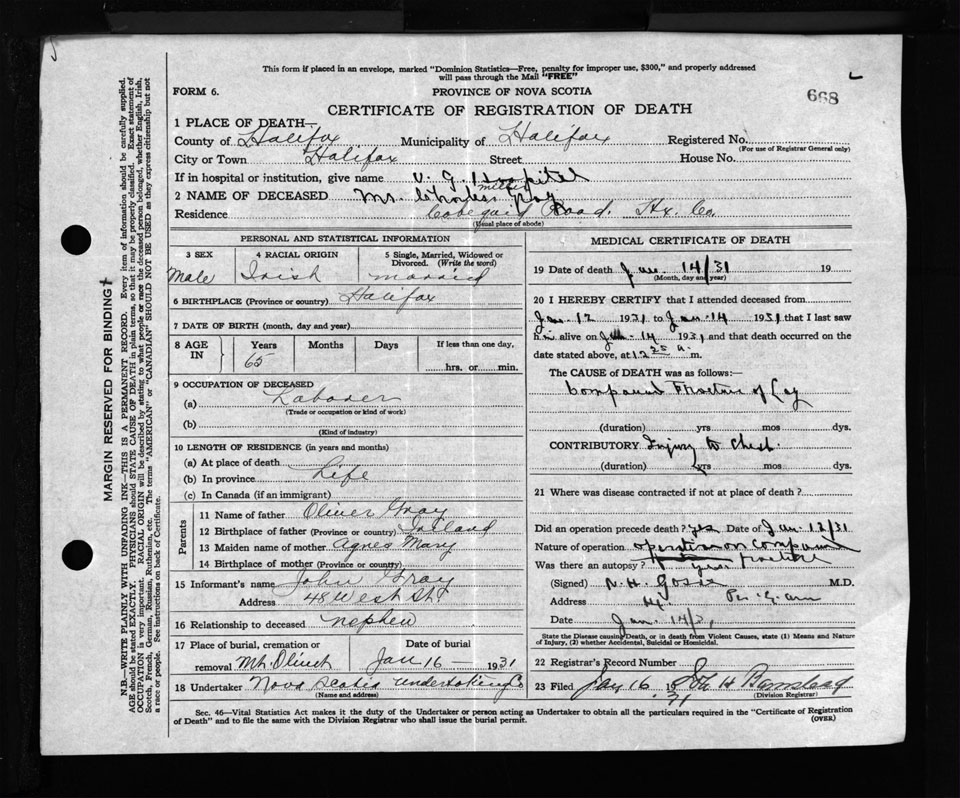 This form if placed in an envelope, marked "Dominion Statistics—Free, penalty for improper use, $300," and properly addressed
will pass through the Mail "FREE"
FORM 6.
PROVINCE OF NOVA SCOTIA
668
CERTIFICATE OF REGISTRATION OF DEATH
1 PLACE OF DEATH—
County of Halifax Municipality of Halifax Registered No.
(For use of Registrar General only)
City or Town Halifax Street House No.
If in hospital or institution, give name V. G. Hospital
2 NAME OF DECEASED Mr. Charles Gray
Residence Road. Hx. Co.
(Usual place of abode)
PERSONAL AND STATISTICAL INFORMATION
3 SEX 4 RACIAL ORIGIN 5 Single, Married, Widowed or
Divorced. (Write the word)
Male Irish married
6 BIRTHPLACE (Province or country) Halifax
7 DATE OF BIRTH (month, day and year)
8 AGE IN Years Months Days If less than one day,
65 hrs. or min.
9 OCCUPATION OF DECEASED
(a) Laborer
(Trade or occupation or kind of work)
(b)
(Kind of industry)
10 LENGTH OF RESIDENCE (in years and months)
(a) At place of death
(b) In province Life
(c) In Canada (if an immigrant)
Parents
11 Name of father Oliver Gray
12 Birthplace of father (Province or country) Ireland
13 Maiden name of mother Agnes Mary
14 Birthplace of mother (Province or country)
15 Informant's name John Gray
Address 48 West St
16 Relationship to deceased nephew
17 Place of burial, cremation or Date of burial
removal Mt. Olivet Jan 16 — 1931
18 Undertaker Nova Scotia Undertaking Co
(Name and address)
MEDICAL CERTIFICATE OF DEATH
19 Date of death Jan. 14/31 19
(Month, day and year)
20 I HEREBY CERTIFY that I attended deceased from
Jan. 12 1931 to Jan. 14 1931 that I last saw
him alive on Jan. 14 1931 and that death occurred on the
date stated above, at 12 25 a. m.
The CAUSE OF DEATH was as follows:—
Compound Fracture of Leg
(duration) yrs mos dys.
CONTRIBUTORY Injury to Chest
(duration) yrs mos dys.
21 Where was disease contracted if not at place of death?
Did an operation precede death? yes Date of Jan. 12/31
Nature of operation operation on compound
fracture
Was there an autopsy?
(Signed) N. H. Gosse M.D.
Address Hx
Date Jan. 14/31
State the Disease causing Death, or in death from Violent Causes, state (1) Means and Nature
of Injury, (2) whether Accidental, Suicidal or Homicidal.
22 Registrar's Record Number
23 Filed Jan 16 19 31
(Division Registrar)
Sec. 46—Vital Statistics Act makes it the duty of the Undertaker or person acting as Undertaker to obtain all the particulars required in the "Certificate of Registration
of Death" and to file the same with the Division Registrar who shall issue the burial permit.
(OVER)
MARGIN RESERVED FOR BINDING
N.B.—WRITE PLAINLY WITH UNFADING INK—THIS IS A PERMANENT RECORD. Every item of information should be carefully supplied.
AGE should be stated EXACTLY. PHYSICIANS should STATE CAUSE OF DEATH in plain terms, so that it may be properly classified. Exact statement of
OCCUPATION is very important. RACIAL ORIGIN will be described by stating to what people or race the deceased person belonged, whether English, Irish,
Scotch, French, German, Russian, Ruthenian, etc. The terms "AMERICAN" or "CANADIAN" SHOULD NOT BE USED as they express citizenship but not
a race or people. See instructions on back of Certificate.